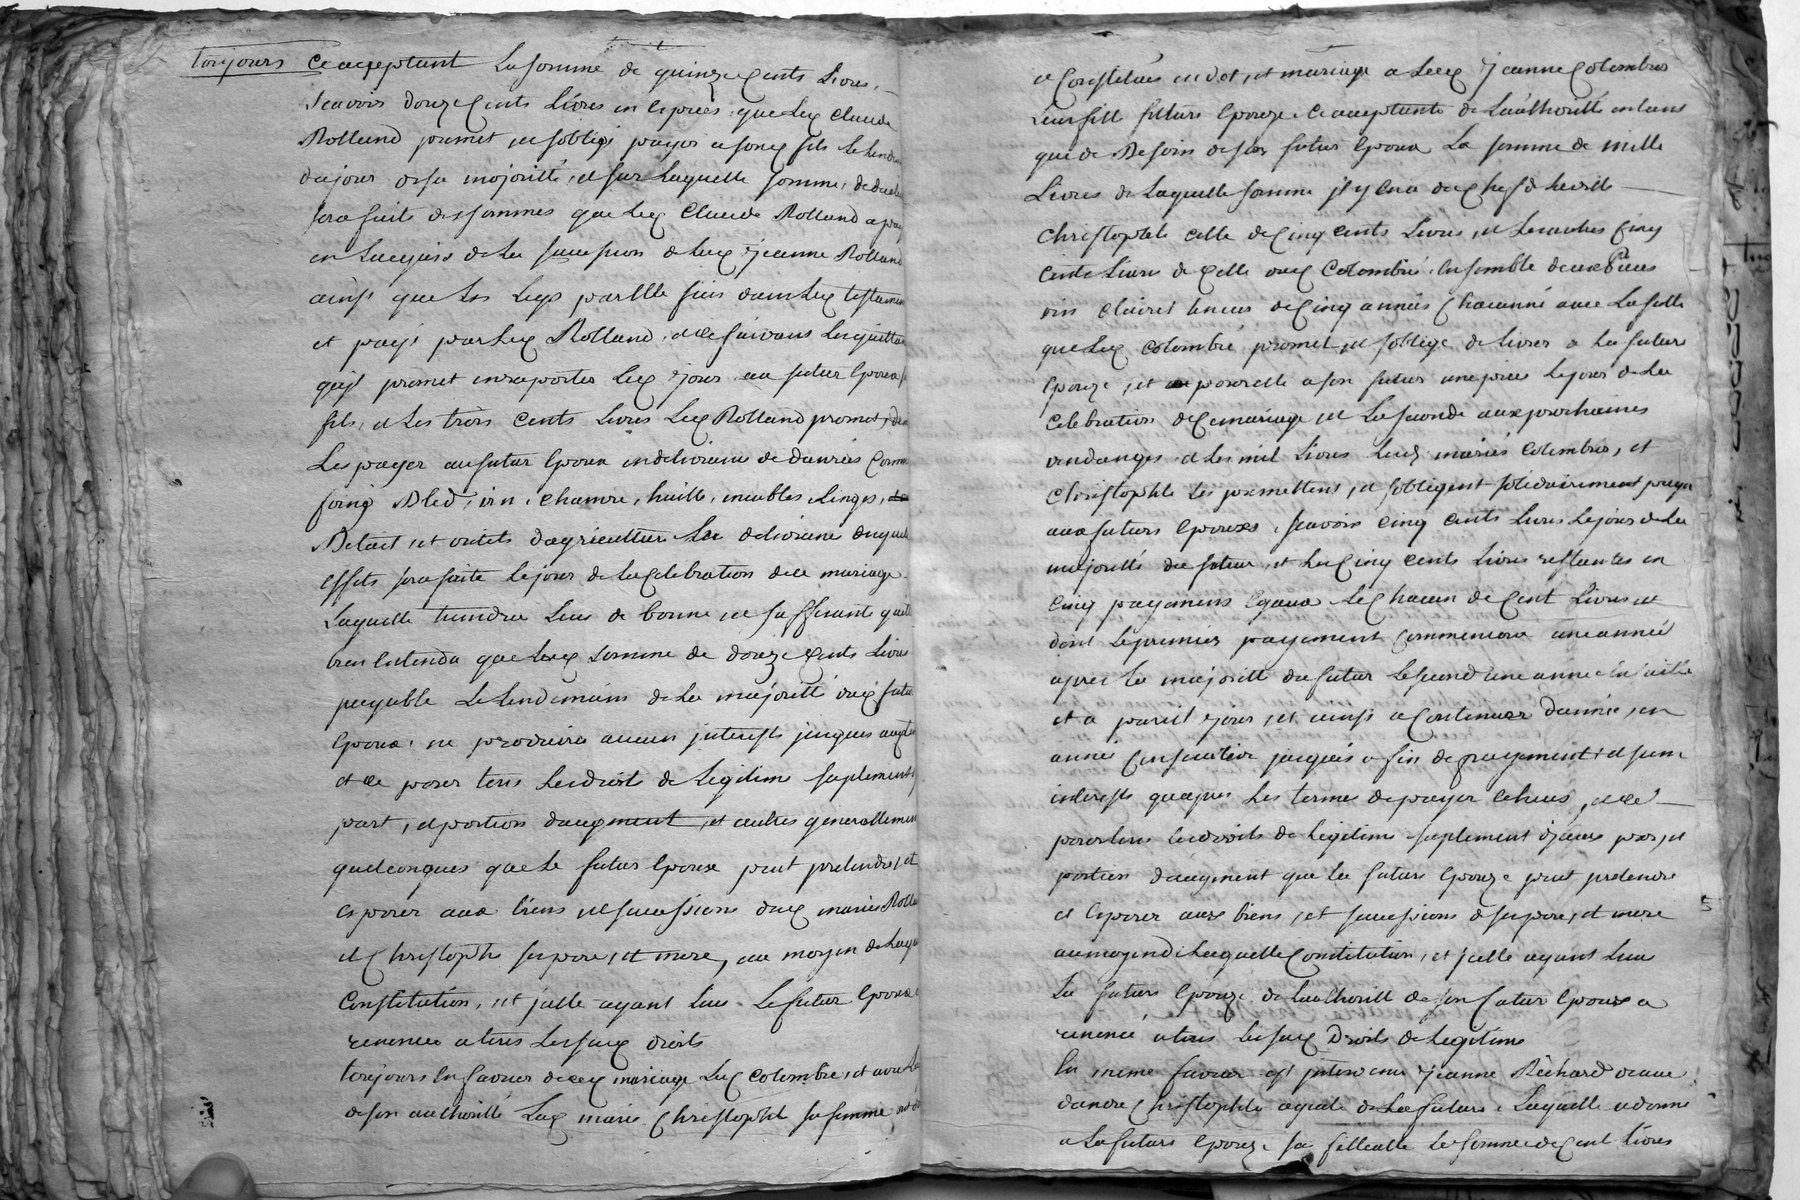 toujours ce acceptant La somme de quinze Cents Livres,
sçavoir douze Cents Livres en especes que Led Claude
Rolland promet, et s'oblige payer a sond fils le lend
du jour de sa majorité, et sur Laquelle somme, deduction
sera faite des sommes que Led Claude Rolland a payé
en Lacquis de La succession de Lad Jeanne Rolland
ainsi que Les Legs par Elle fais dans Led testament
et payé par Led Rolland, et ce suivans Les quittances
quil promet en raporter Led jour au futur Epoux
fils, et Les trois Cents Livres Led Rolland promet, de
Les payer au futur Epoux en delivrance de danrées Comme
foing Bled, vin, Chanvre, huille, meubles Linges,
Betail, et outils d'agriculture La delivrance duquel
effets sera faite Le jour de La Celebration de ce mariage
Laquelle tiendra Lieu de bonne, et suffisante quit
bien Entendu que Lad somme de douze Cents Livres
payable Le Lendemain de La majorité dud futur
Epoux, ne produira aucun interests jusques aud
et ce pour tous Les droits de Legitime suplement,
part, et portion daugment, et autres generallement
quelconques que Le futur Epoux peut pretendre, et
esperer aux biens et successions dud mariés Rolland
et Christophle ses pere, et mere, au moyen de Laquelle
Constitution, et icelle ayant Lieu Le futur Epoux a
renoncé a tous Lessusd droits
toujours En faveur dece mariage Led Colombre, et
de son authorité Lad marie Christophle sa femme ont
et Constitués en dot, et mariage a Lad Jeanne Colombre
leur fille future Epouze Ce acceptante de L'authorité en tans
que de Besoin de son futur Epoux La somme de mille
Livres de Laquelle somme il y En a du Chef de Ladite
Christophle celle de Cinq Cents Livres, et Les autres Cinq
Cents Livres de Celle dud Colombre, Ensemble deux Pieces
vin Clairet teneur de Cinq années Chacunne avec La futte
que Led Colombre promet, et s'oblige de Livrer a La future
Epouze, et pour elle a son futur une piece Le jour de La
Celebration de Ce mariage, et La seconde aux prochaines
vendanges, et Les mil Livres Lesd mariés Colombre, et
Christophle Les promettent, et s'obligent solidairement payer
aux futurs Epouxes, sçavoir Cinq Cents Livres Le jour de La
majorité du futur, et Les Cinq Cents Livres restantes en
Cinq payemens Egaux de Chacun de Cent Livres, et
dont Le premier payement Commencera une année
apres La majorité du futur Le second une année Ensuitte
et a pareil jour, et ainsi a Continuer d'année, en
année Consecutive jusques a fin de payement, et sans
interests qu'apres Les termes de payer Echeus, et ce
pour tous Les droits de Legitime suplement d'icelle part, et
portion d'augment que La future Epouze peut pretendre
et Esperer aux biens, et successions de ses pere, et mere
au moyen de Laquelle Constitution, et icelle ayant Lieu
La future Epouze de L'authorité de son futur Epoux a
renoncé a tous Lessusd Droits de Legitime
En meme faveur est intervenue Jeanne Richard veuve
d'andre Christophle ayeule de La future, Laquelle a donné
a La future Epouze sa filleulle La somme de Cent Livres